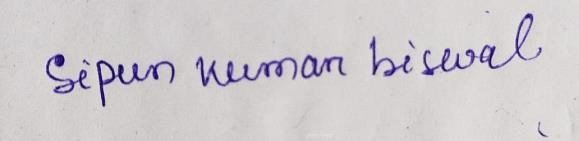 Sipun kumar biswal